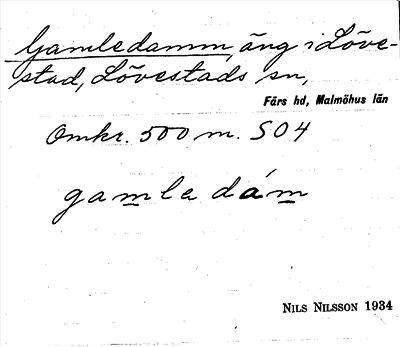 Gamledamm, äng i Löve-
stad, Lövestads sn,
Färs hd, Malmöhus län
Omkr. 500 m. SO4
gamla dám
NILS NILSSON 1934